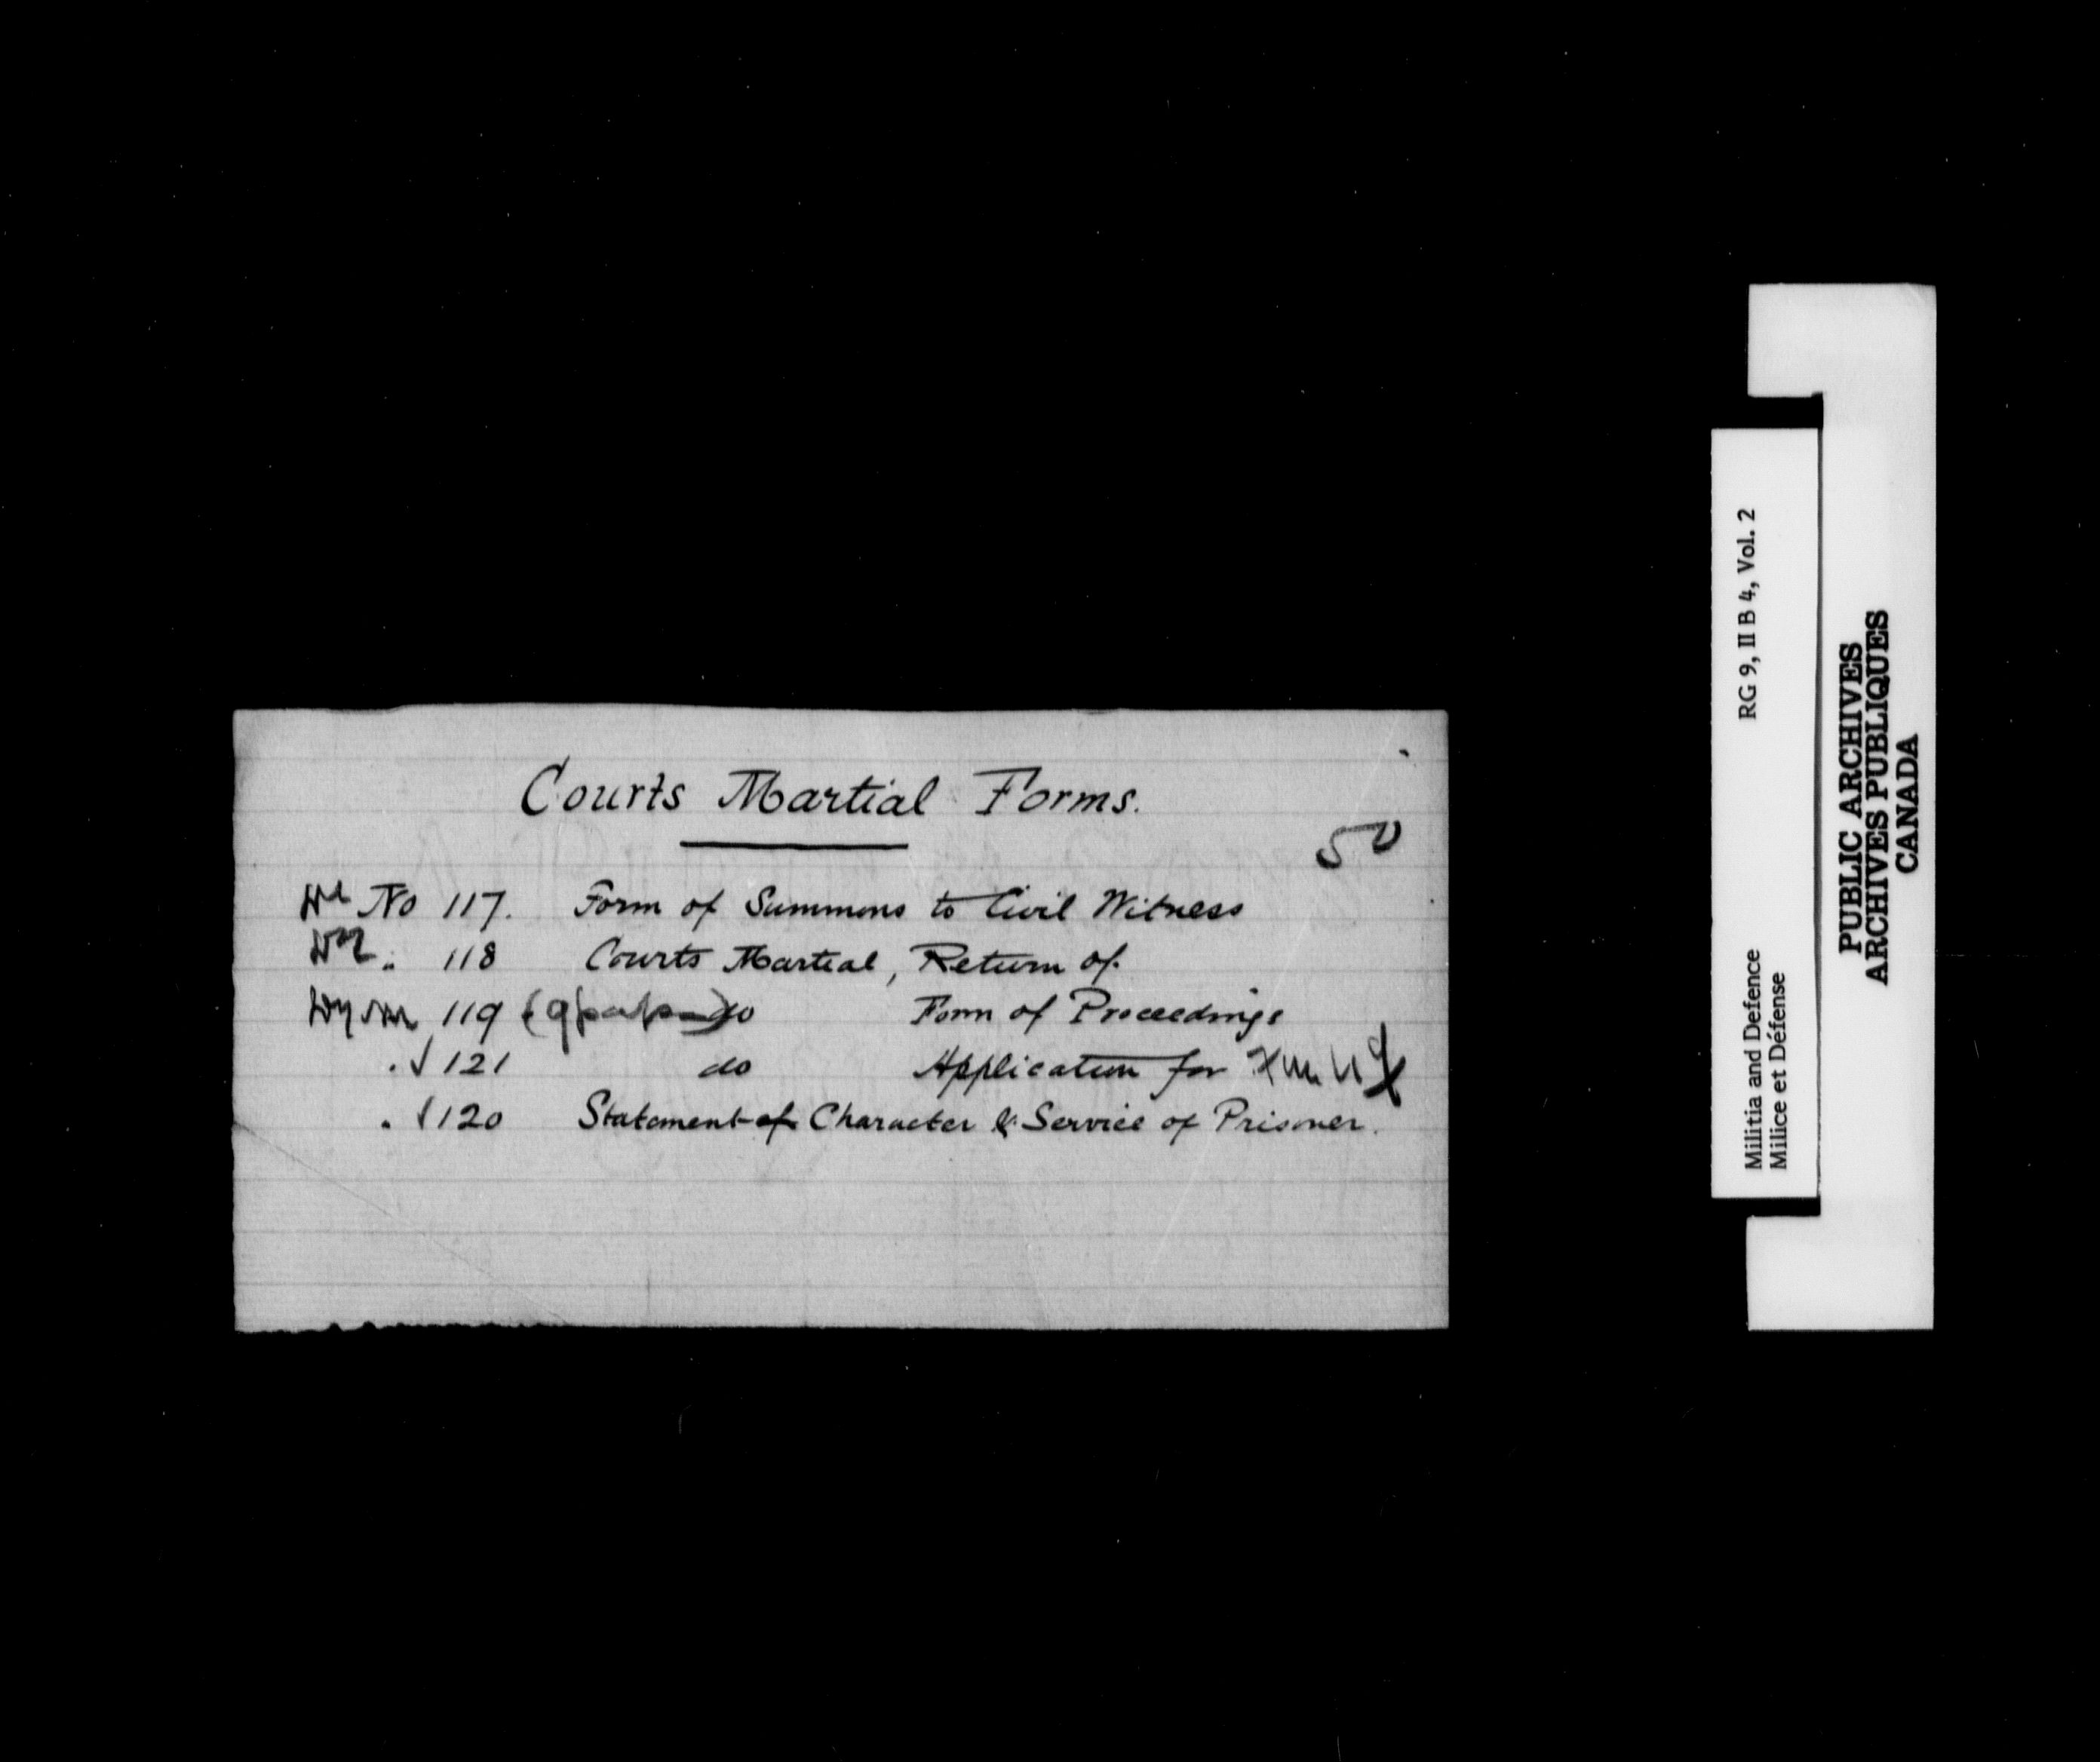 Courts Martial Forms.
50
No 117. Form of Summons to Civil Witness
" 118 Courts Martial, Return of.
119 do Form of Proceedings
" √ 121 do Application for
" √ 120 Statement of Character & Service of Prisoner.
RG 9, II B 4, Vol. 2
Militia and Defence
Milice et Défense
PUBLIC ARCHIVES
ARCHIVES PUBLIQUES
CANADA